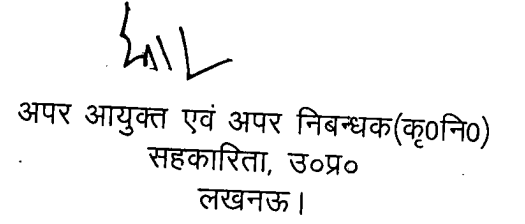 अपर आयुक्त एवं अपर निबन्धक(कृ०नि०)
सहकारिता, उ०प्र०
लखनऊ।